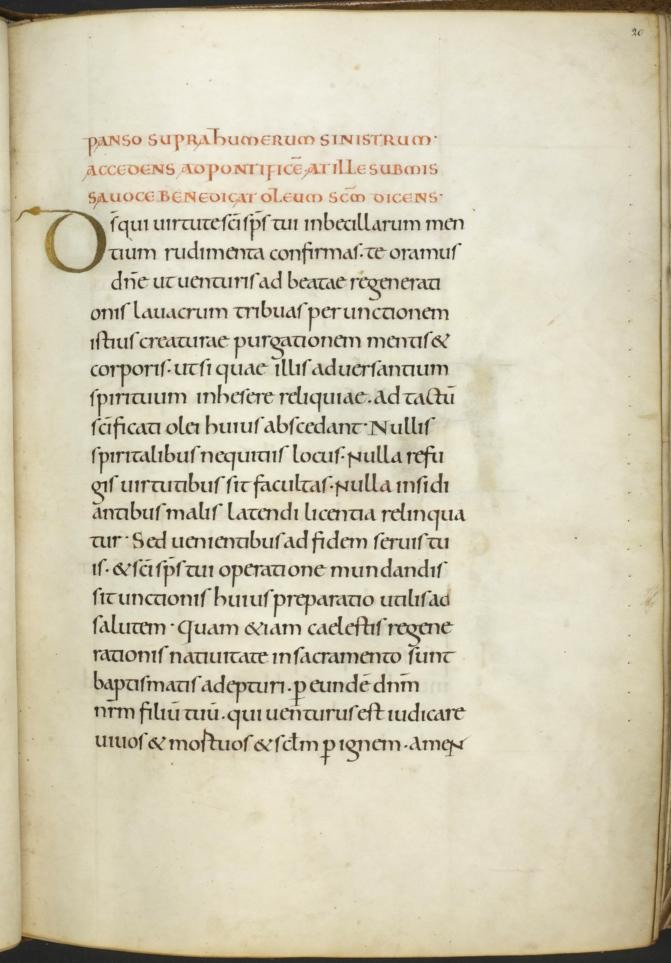 20
PANSO SUPRA hUMERUM SINISTRUM·
ACCEDENS AD PONTIFICĒ. AT ILLE SUBMIS
SA VOCE BENEDICAT OLEUM SC̄M DICENS·
D̄s qui uirtute sc̄i sp̄s tui inbecillarum men
tium rudimenta confirmas. te oramus
dn̄e ut uenturis ad beatae regenerati
onis lauacrum tribuas per unctionem
istius creaturae purgationem mentis &
corporis. ut si quae illis aduersantium
spirituum inhesere reliquiae. ad tactū
sc̄ificati olei huius abscedant· Nullis
spiritalibus nequitiis locus· Nulla refu
gis uirtutibus sit facultas· Nulla insidi
antibus malis latendi licentia relinqua
tur· Sed uenientibus ad fidem seruis tu
is. & sc̄i sp̄s tui operatione mundandis
sit unctionis huius preparatio utilis ad
salutem· Quam &iam caelestis regene
rationis natiuitate in sacramento sunt
baptismatis adepturi. ꝑ eundē dn̄m
nr̄m filiū tuū. qui uenturus est iudicare
uiuos & mortuos & sclm̄ ꝑ ignem. amen